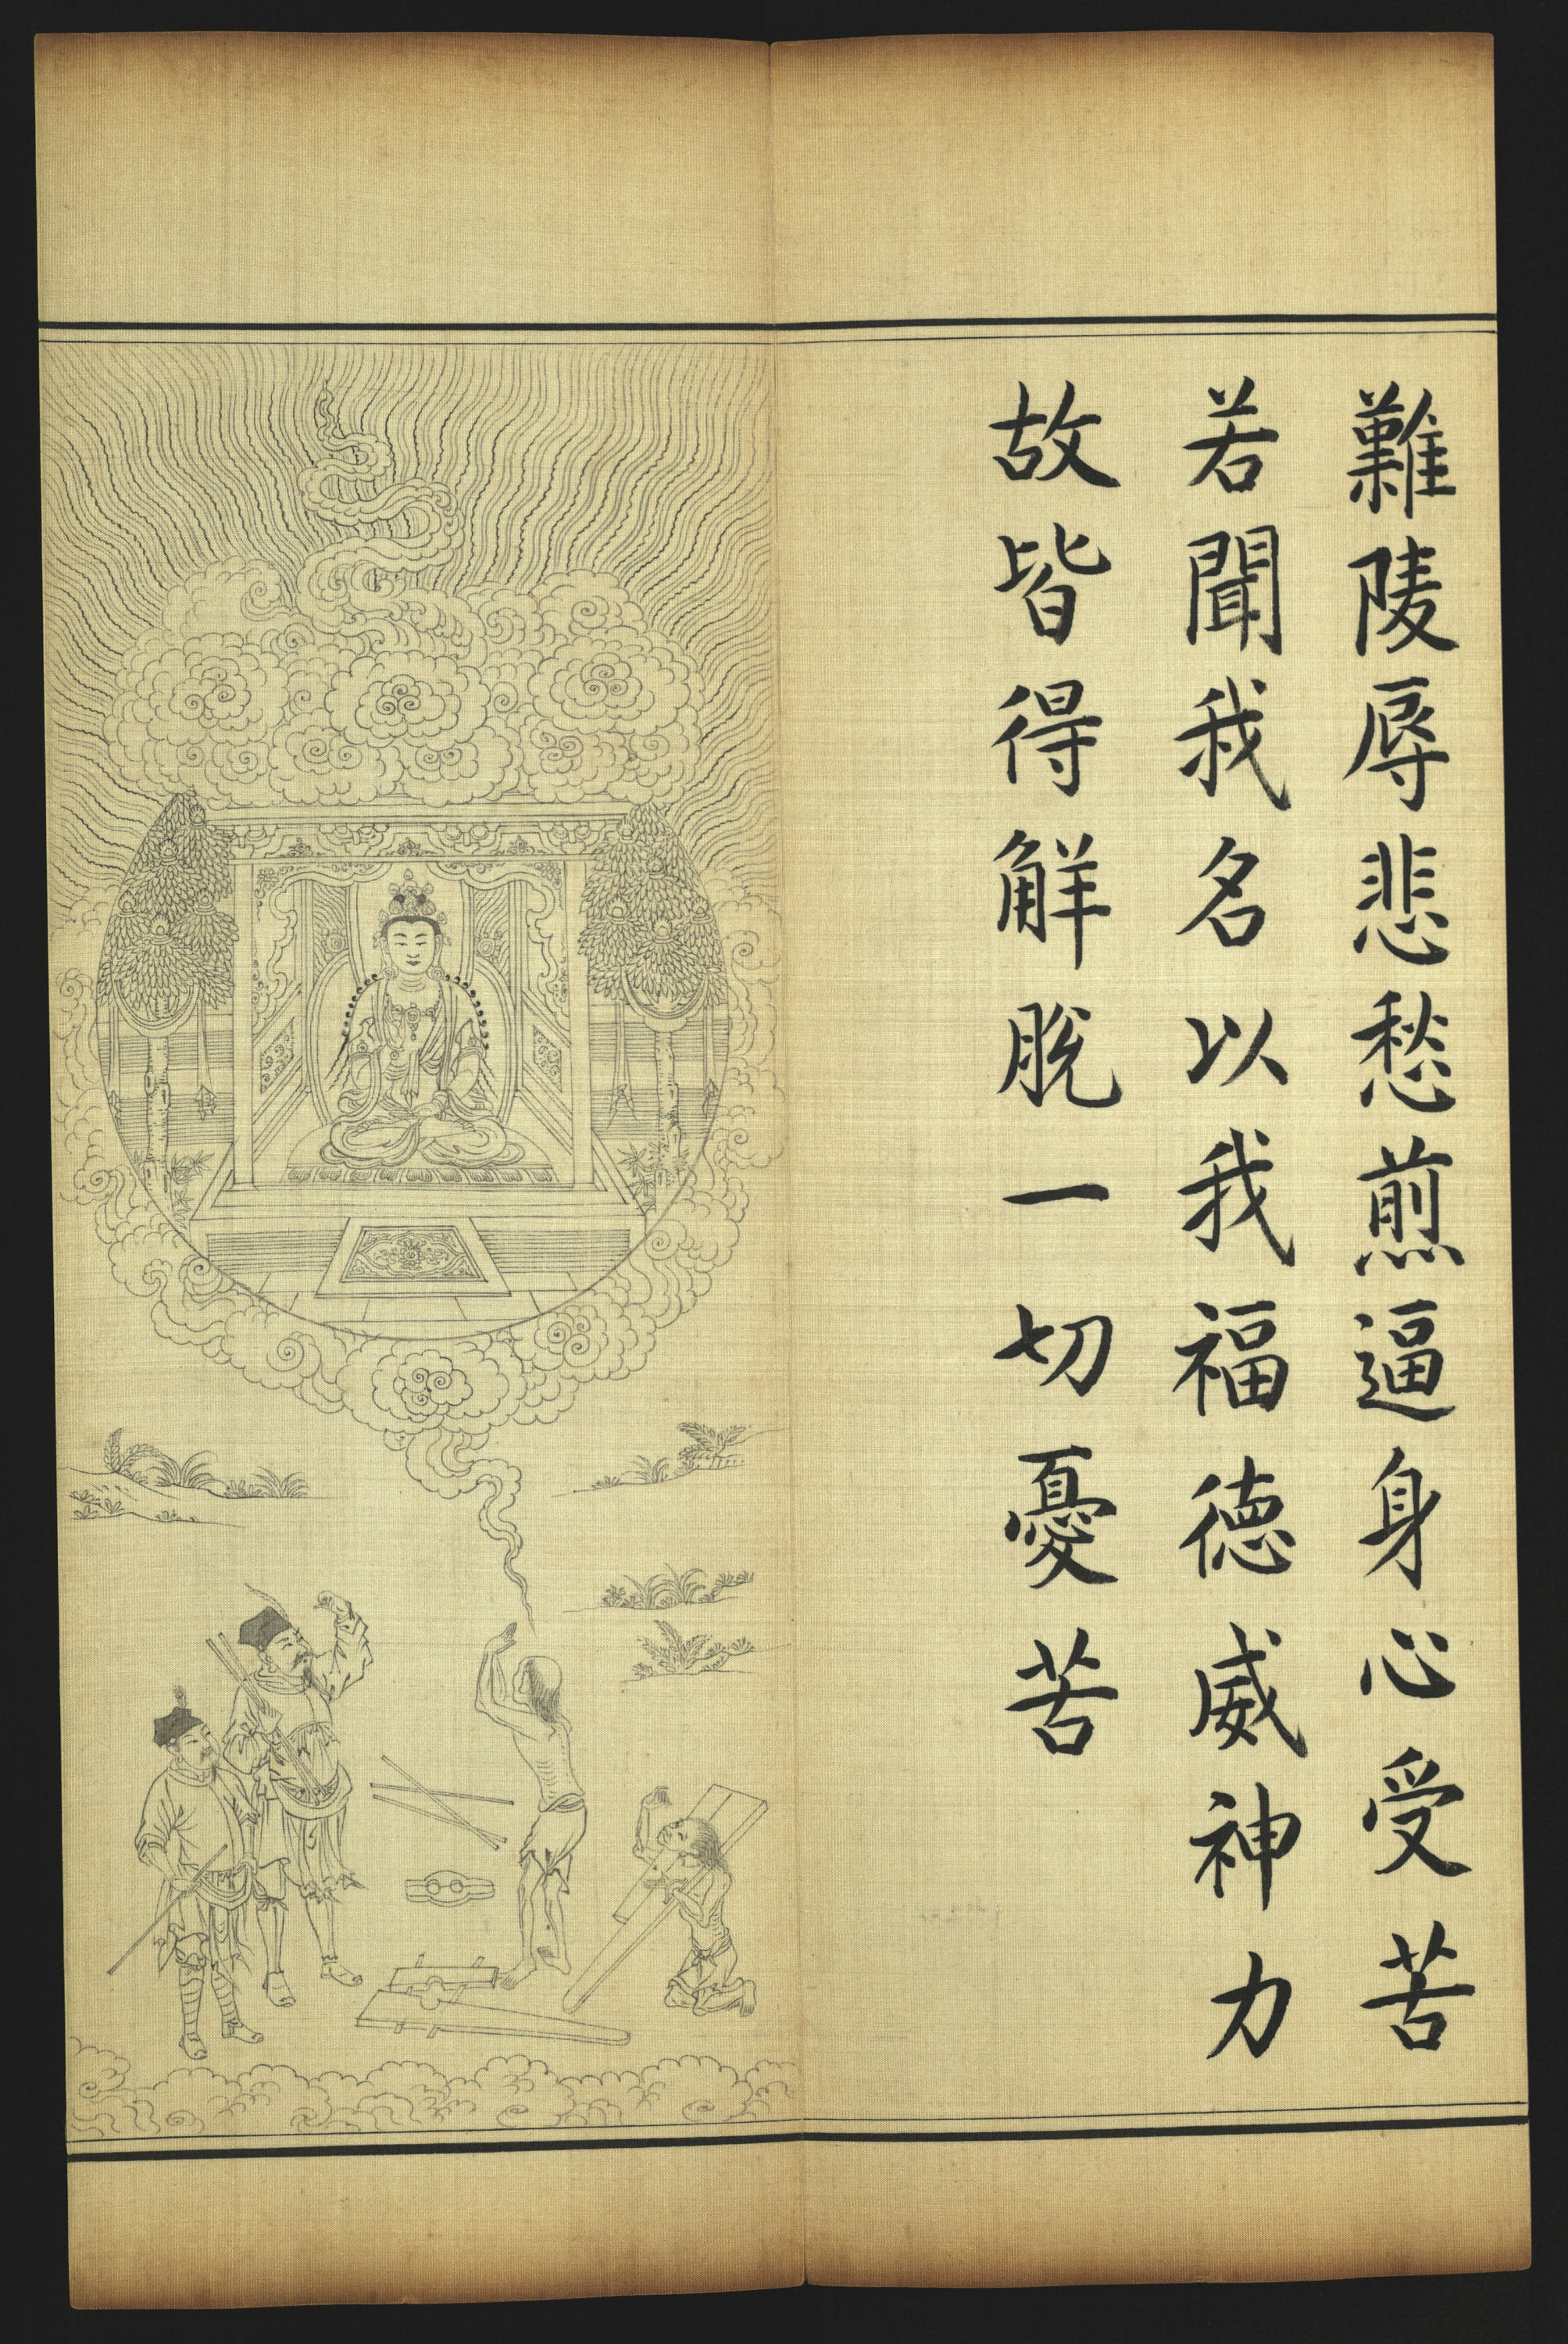 難陵辱悲愁煎逼身心受苦
若聞我名以我福德威神力
故皆得解脫一切憂苦